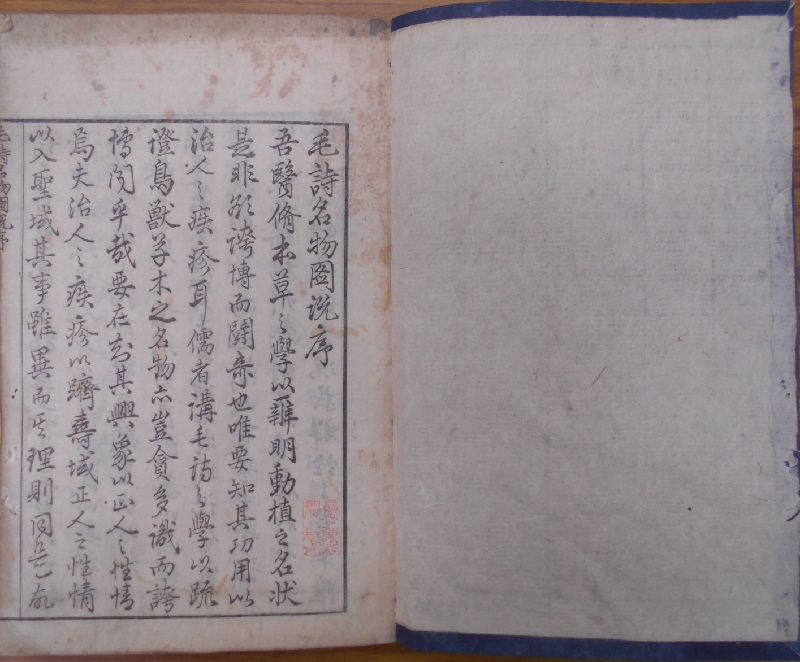 毛詩名物圖說序
吾醫脩本草之學以辨明動植之名狀
是非欲誇博而鬪奇也唯要知其功用以
治人之疾疹耳儒者講毛詩之學以疏
證鳥獸草木之名物亦豈貪多識而誇
博聞乎哉要在知其興象以正人之性情
焉夫治人之疾疹以躋壽域正人之性情
以入聖域其事雖異而其理則同是
毛詩名物圖說序